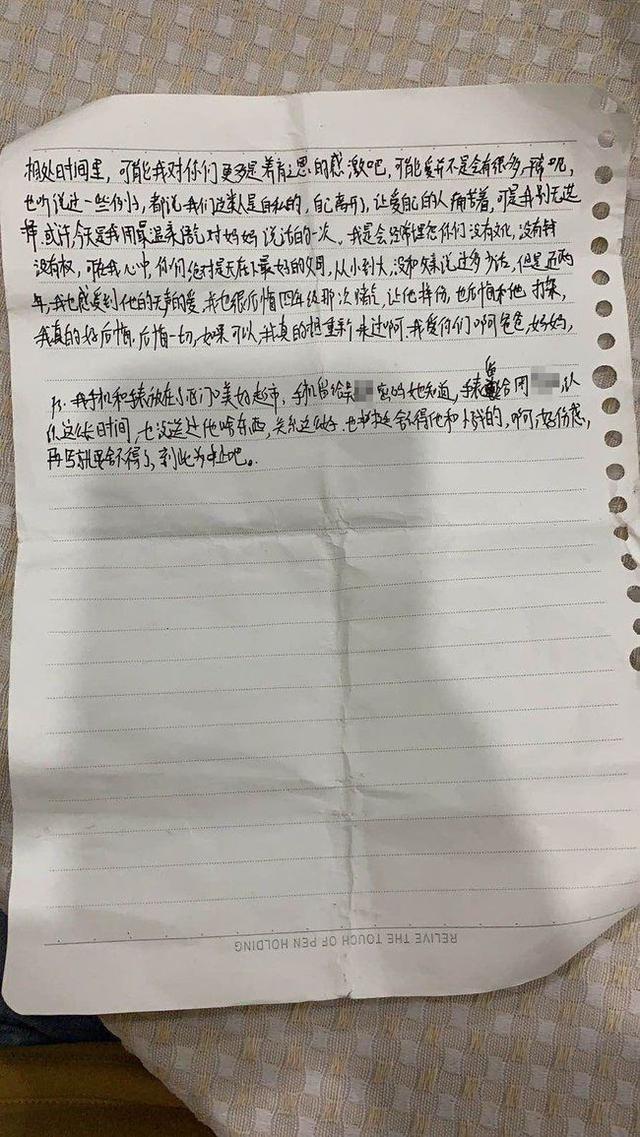 相处时间里，可能我对你们更多是养育之恩的感激吧，可能爱并不是会有很多，嗨呢，
也听说过一些例子，都说我们这类人是自私的，自己离开了，让爱自己的人痛苦着，可是我别无选
择．或许今天是我用最温柔语气对妈妈说话的一次，我是会经常埋怨你们没有文化，没有钱
没有权，可在我心中，你们绝对是天底下最好的父母，从小到大，没和爸爸说过多少话，但是这两
年，我也感受到他的无声的爱，我也很后悔四年级那次赌气，让他摔伤，也后悔和他打架，
我真的好后悔．后悔一切，如果可以，我真的想重新来过啊．我爱你们啊爸爸，妈妈，
Ps．我手机和手表放在小西门口美好超市，手机留给吴 密码她知道，手表留给周 认
么这么长时间，也没送过他啥东西，关系这么好，也 是舍不得他和 的，啊，好伤感，
再写就要舍不得了，到此为止吧。
RELIVE THE TOUCH OF PEN HOLDING